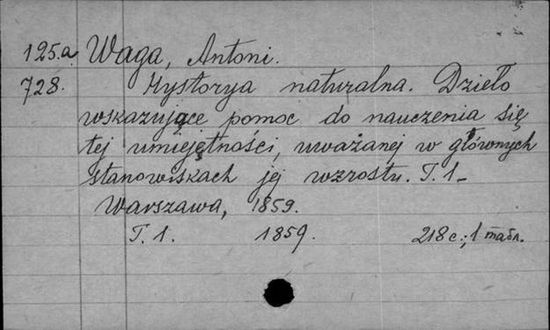 125.a Waga, Antoni.
728. Hystorya naturalna. Dzieło
wskazujące pomoc do nauczenia się
tej umiejętności, uważanej w głównych
stanowiskach jej wzrostu. T. 1-
Warszawa, 1859.
T. 1. 1859. 218 c.; 1 табл.